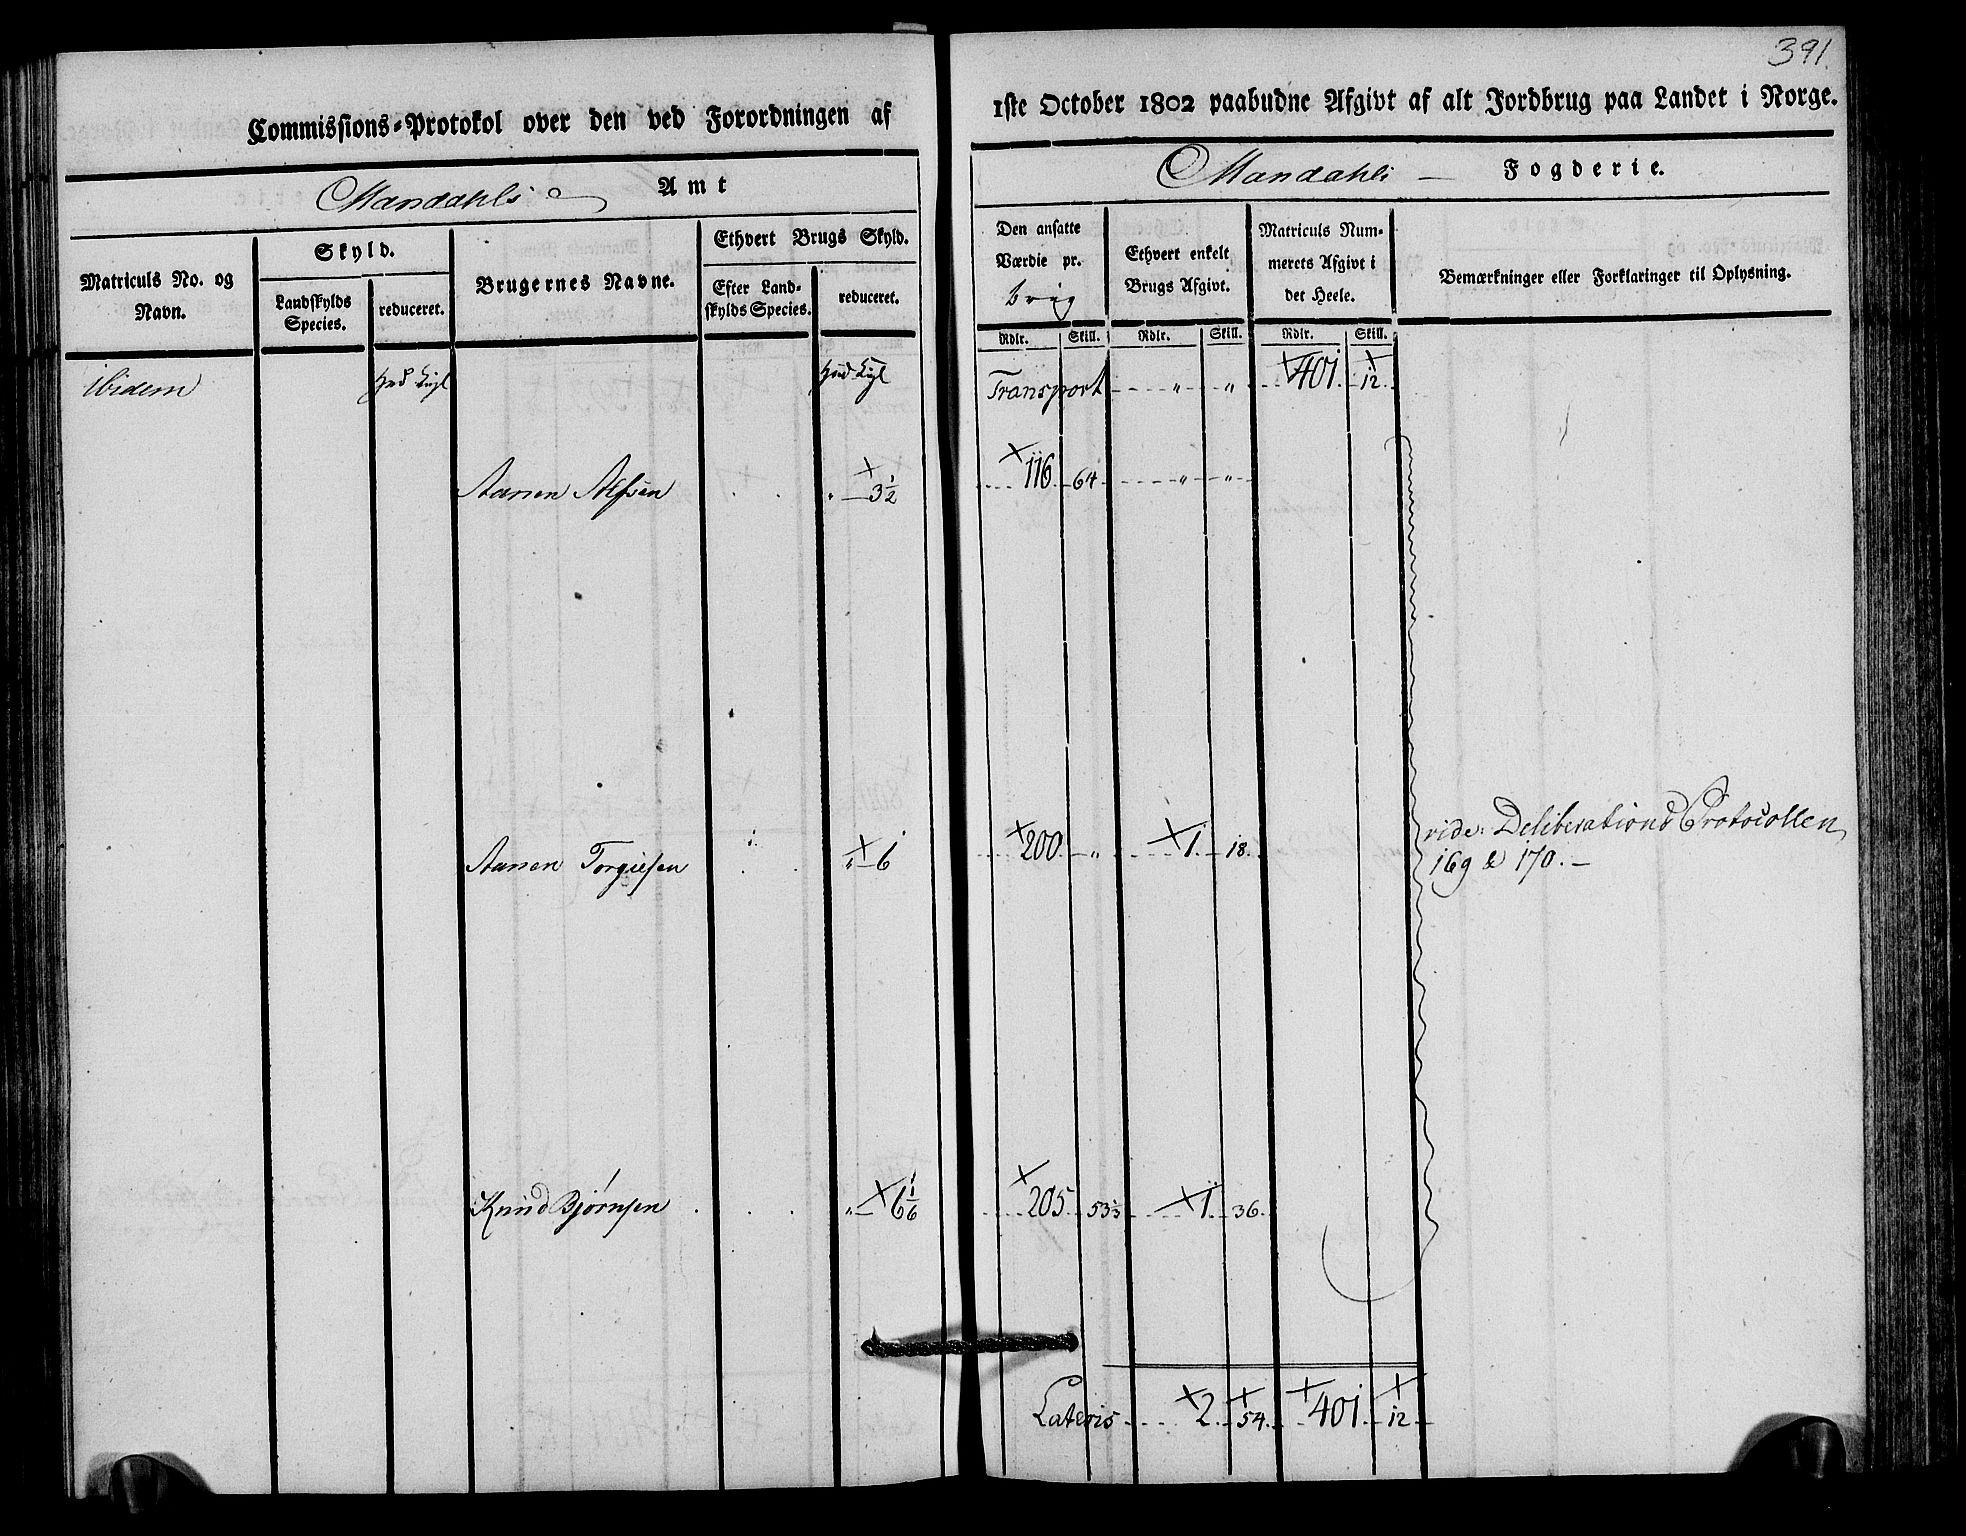 391.
Commissions-Protokol over den ved Forordningen af 1ste October 1802 paabudne Afgivt af alt Jordbrug paa Landet i Norge.
Mandahls Amt
Mandahls Fogderie.
Matriculs No. og Navn.
Skyld.
Landskylds Species.
reduceret.
Brugernes Navne.
Ethvert Brugs Skyld.
Efter Land-skylds Species.
reduceret.
Den ansatte Værdie pr. brug
Ethvert enkelt Brugs Afgivt.
Matriculs Num-merets Afgivt i det Heele.
Bemærkninger eller Forklaringer til Oplysning.
Rdlr. Skill. Rdlr. Skill. Rdlr. Skill.
ibidem Hud Kigl Hud Kigl Transport " " 401 12
Aanen Alfsen " 3 1/2 116 64 " "
Aanen Torgiesen " 6 200 " 1 18
vide: Deliberations Protocollen
169 & 170.
Knud Bjørnsen " 6 1/6 205 53 1/3 1 36
Lateris 2 54 401 12